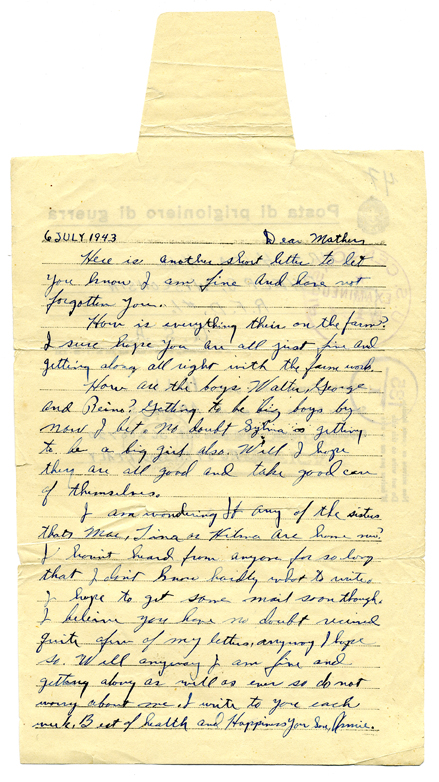 Posta di prigioniero di guerra
6 JULY 1943 Dear Mother,
Here is another short letter to let
you know I am fine and have not
forgotten you.
How is everything their on the farm?
I sure hope you are all just fine and
getting along all right with the farm work.
How are the boys. Walter, George
and Reino? Getting to be big boys by
now I bet. No doubt Sylvia is getting
to be a big girl also. Well I hope
they are all good and take good care
of themselves.
I am wondering If any of the sisters
thats Mae, Tina or Hilma are home now?
I havint heard from anyone for so long
that I don't know hardly what to write.
I hope to get some mail soon though.
I believe you have no doubt received
quite afew of my letters, anyway I hope
so. Well anyway I am fine and
getting along as well as ever so do not
worry about me. I write to you each
week. Best of health and Happiness Your Son, Arnie.